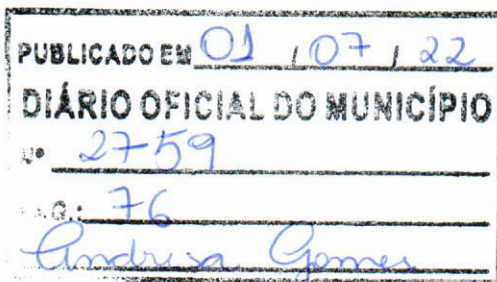 PUBLICADO EM 01 / 07 / 22
DIÁRIO OFICIAL DO MUNICÍPIO
Nº 2759
PAG.: 76
Andrisa Gomes